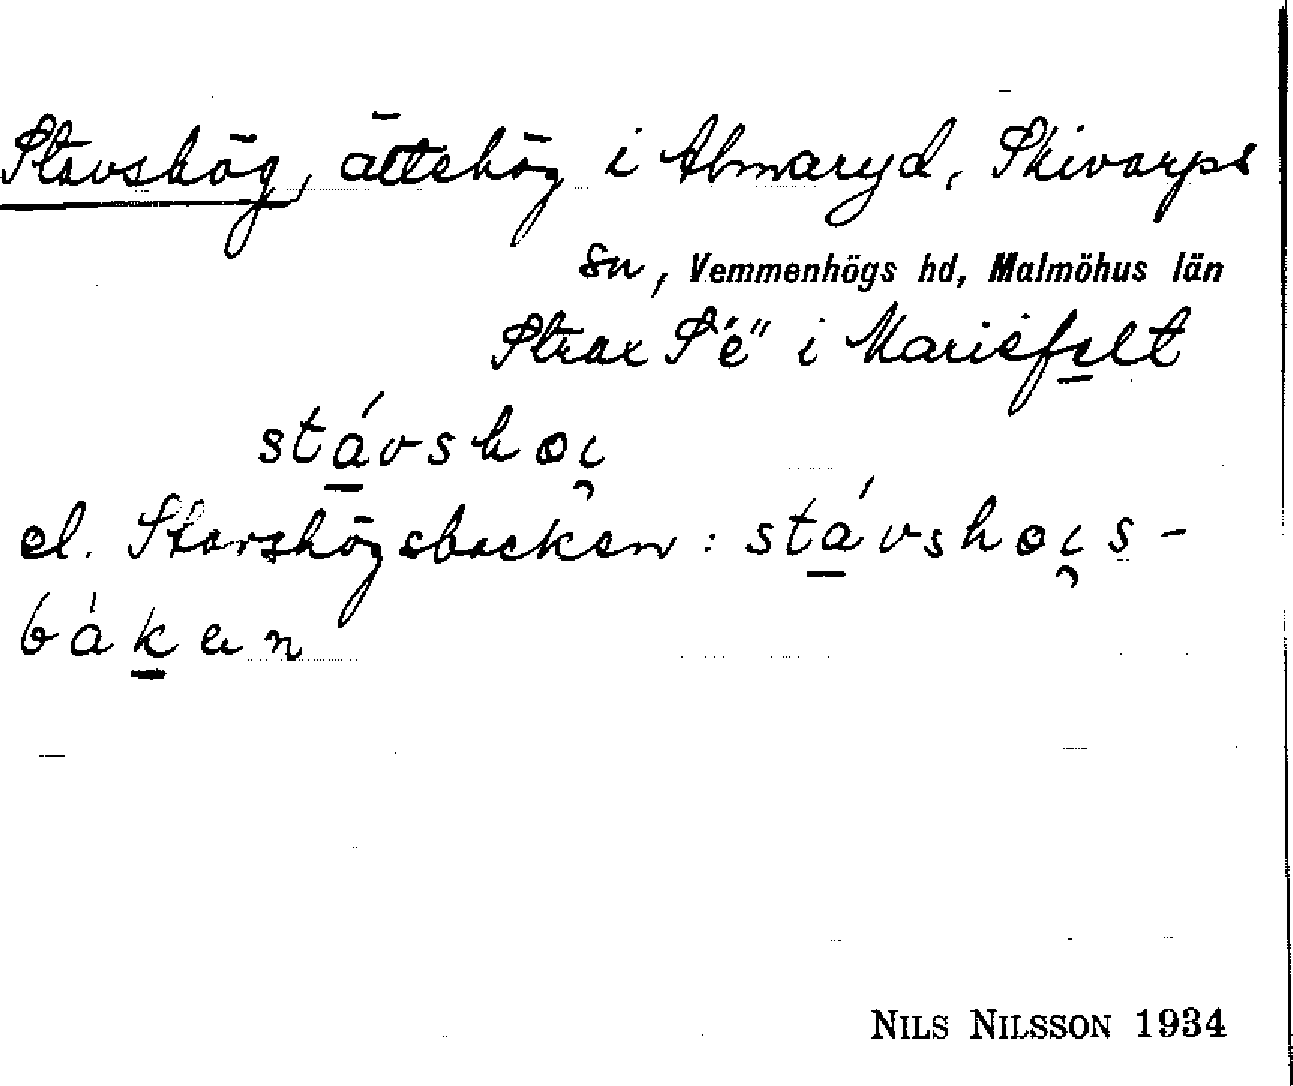 Stavshög, ättehög i Abmaryd, Skivarps
sn, Vemmenhögs hd, Malmöhus län
Strax S "é" i Mariefelt
stávshoi̯
el. Stavshögsbacken: stávshoi̯s-
bàkan
NILS NILSSON 1934